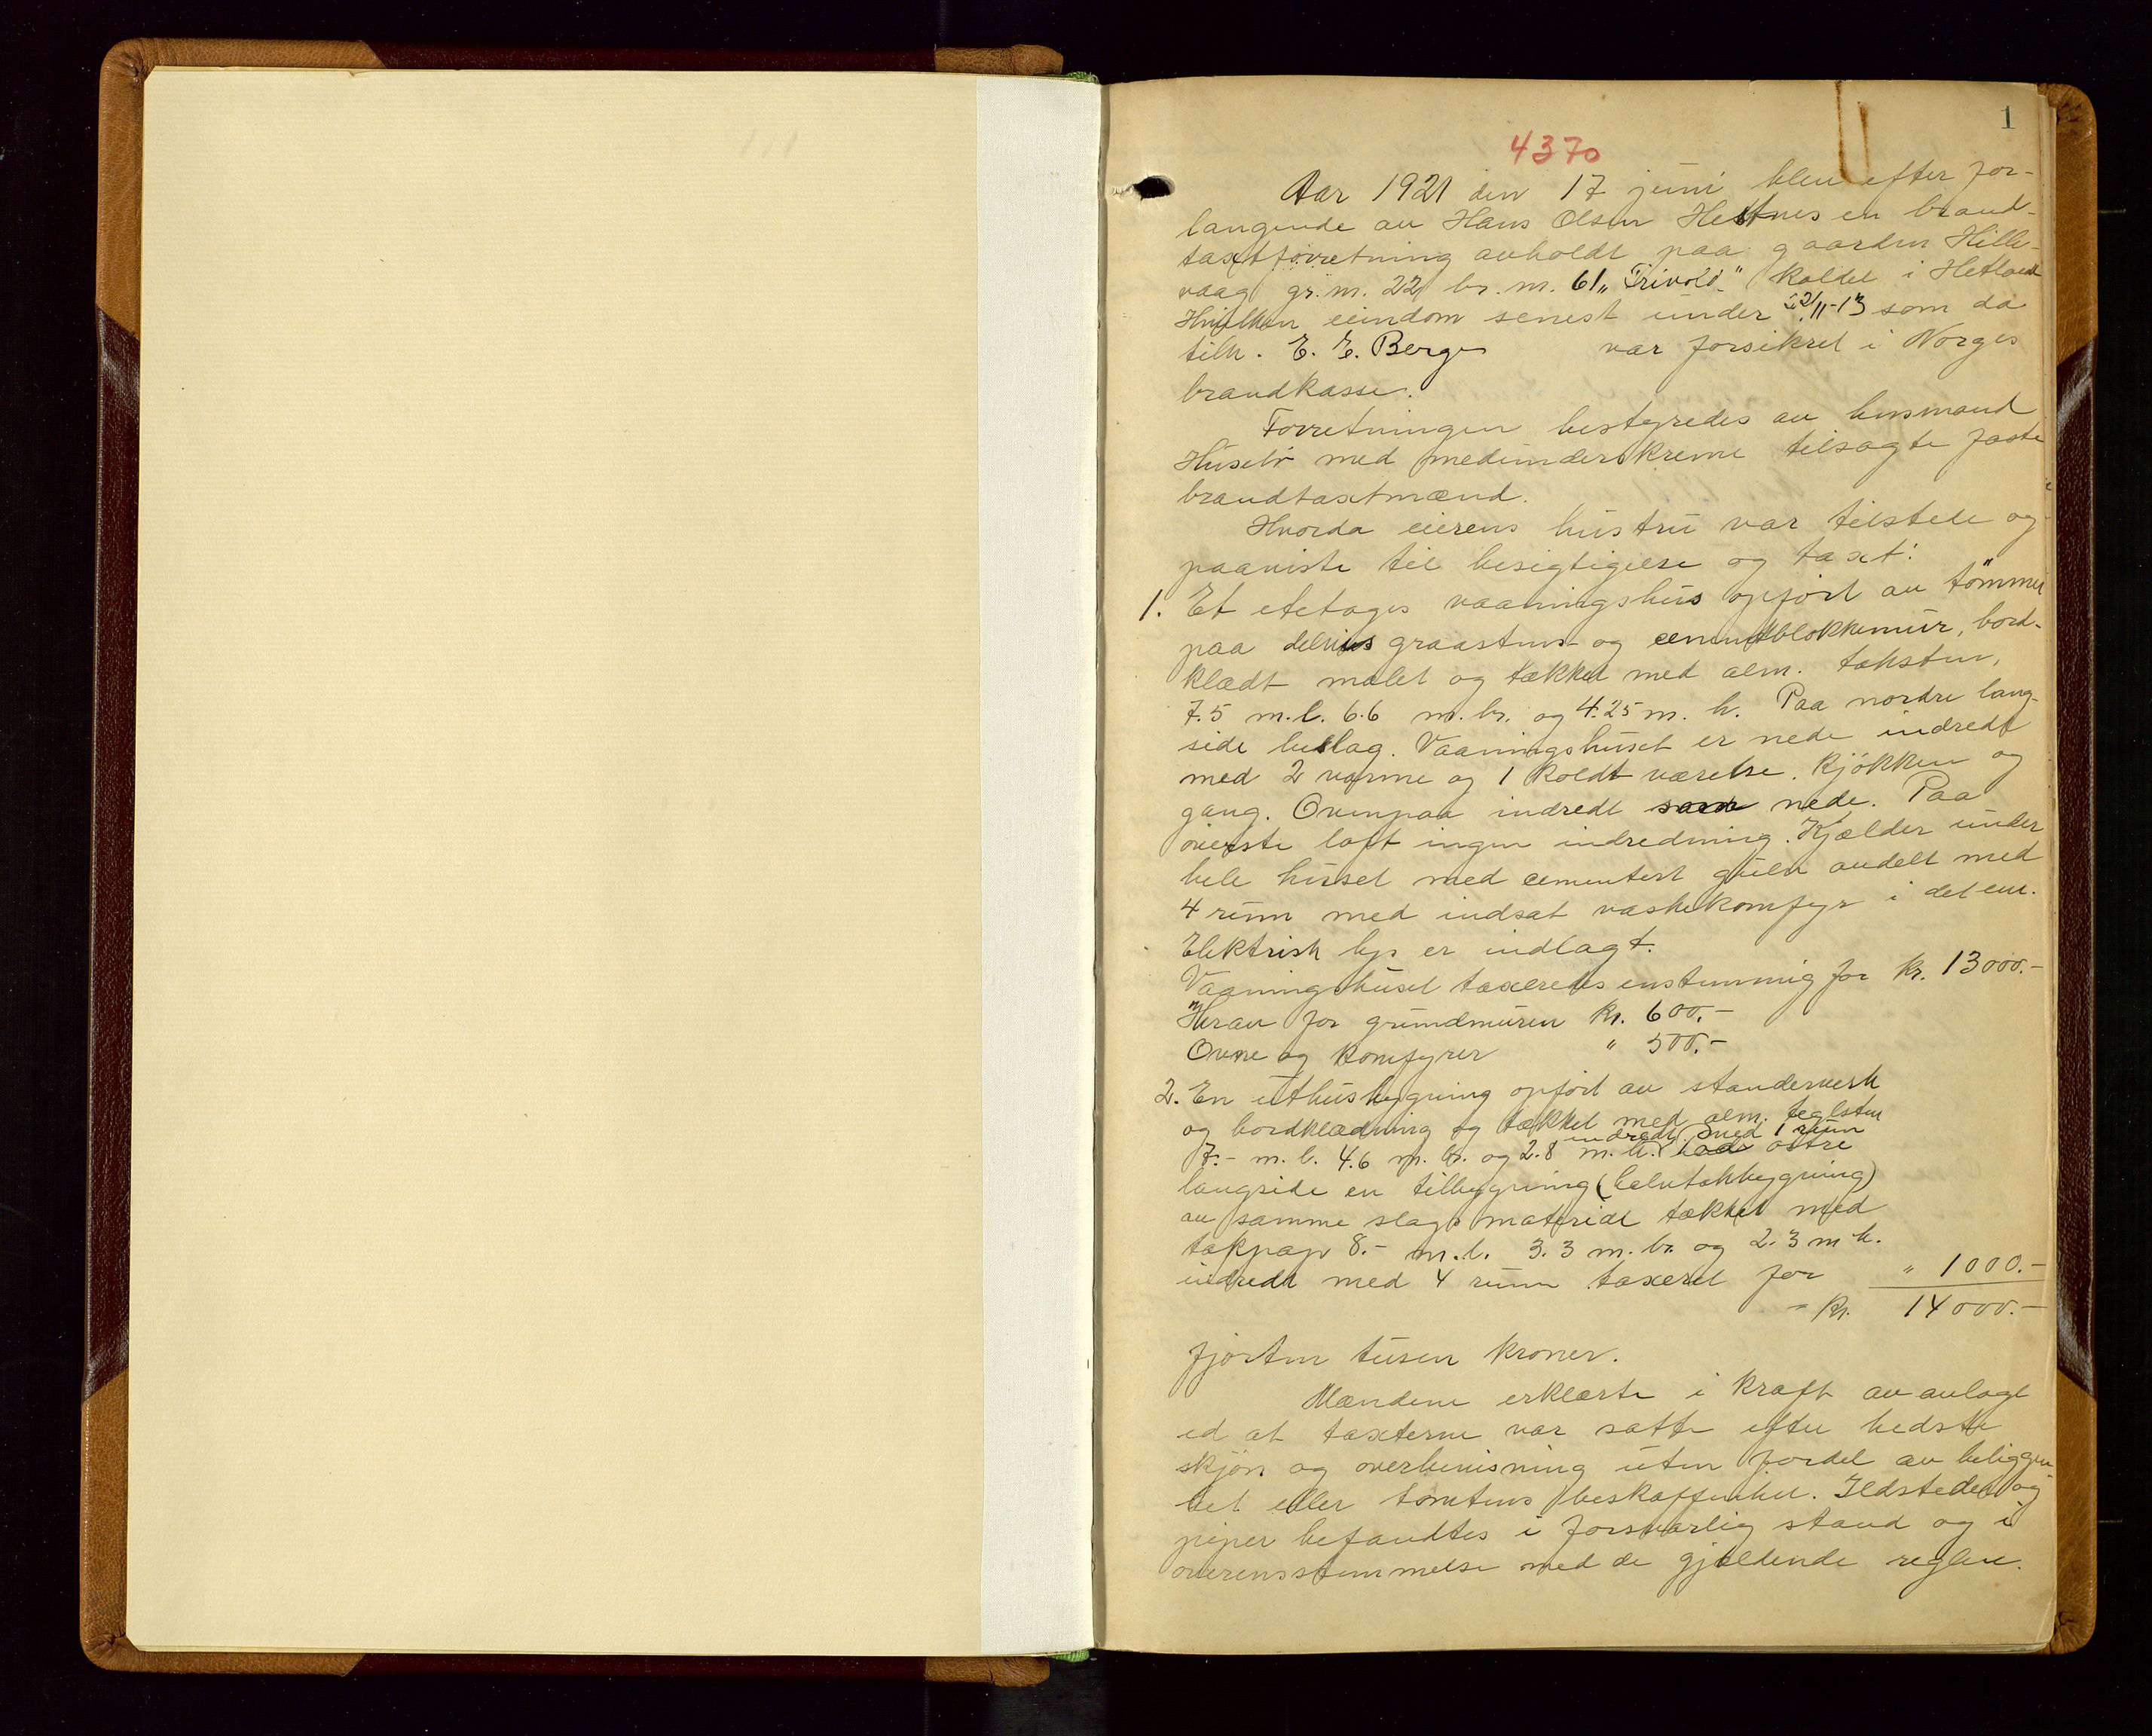 1
4370
Aar 1921 den 17 juni blev efter for-
langende av Hans Olsen Hettnes en brand-
taxtforretning avholdt paa gaarden Hille-
vaag gr.n. 22 br.n. 61 „Trivold“ kaldet i Hetland
Hvilken eiendom senest under 21/11-13 som da
tilh. E. E. Berge var forsikret i Norges
brandkasse.
Forretningen bestyredes av lensmand
Husebø med medunderskrevne tilsagte faste
brandtaxtmænd.
Hvorda eierens hustru var tilstede og
paaviste til besigtigelse og taxt:
1. Et etetages vaaningshus opført av tømmer
paa delvis graastens- og cementblokkemur, bord-
klædt malet og tækket med alm. taksten,
7.5 m.l. 6.6 m.br. og 4.25 m.h. Paa nordre lang-
side beslag. Vaaningshuset er nede indredt
med 2 varme og 1 koldt værelse. Kjøkken og
gang. Ovenpaa indredt som nede. Paa
øverste loft ingen indredning. Kjælder under
hele huset med cementert gulv avdelt med
4 rum med indsat vaskekomfyr i det ene.
Elektrisk lys er indlagt.
Vaaningshuset taxeredes enstemmig for kr. 13000.-
Herav for grundmuren kr. 600.-
Ovne og komfyrer " 500.-
2. En uthusbygning opført av standerverk
og bordklædning og tækket med alm. teglsten
indredt med 1 rum
7.- m.l. 4.6 m.br. og 2.8 m.h. østre
langside en tilbygning (halvtakbygning)
av samme slags materiale tækket med
takpap 8.- m.l. 3.3 m.br. og 2.3 m h.
indredt med 4 rum taxeret for " 1000.-
= kr. 14000.-
fjorten tusen kroner.
Mændene erklærte i kraft av avlagt
ed at taxterne var satte efter bedste
skjøn og overbevisning uten fordel av beliggen-
het eller tomtens beskaffenhet. Ildsteder og
piper befandtes i forsvarlig stand og i
overensstemmelse med de gjældende regler.